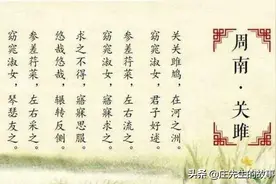 周南·关雎
关关雎鸠，在河之洲。
窈窕淑女，君子好逑。
参差荇菜，左右流之。
窈窕淑女，寤寐求之。
求之不得，寤寐思服。
悠哉悠哉，辗转反侧。
参差荇菜，左右采之。
窈窕淑女，琴瑟友之。
头条 @庄先生的故事